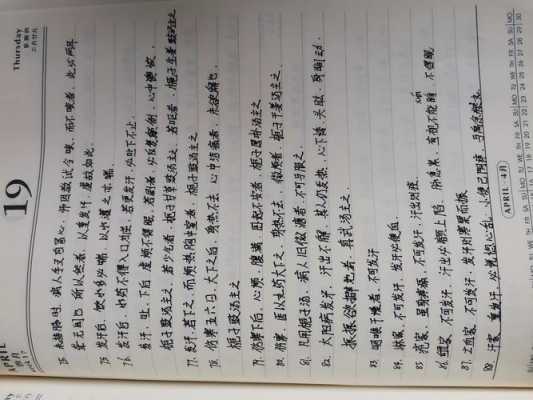 Thursday
星期四
19
75. 未持脉时，病人手叉自冒心，师因教试令咳，而不咳者，此必两耳
聋无闻也 所以然者，以重发汗，虚故如此。
75 发汗后，饮水多必喘，以水灌之亦喘。
76. 发汗后，水药不得入口为逆，若更发汗，必吐下不止。
发汗、吐、下后，虚烦不得眠，若剧者，必反覆颠倒，心中懊憹，
栀子豉汤主之，若少气者，栀子甘草豉汤主之，若呕者，栀子生姜豉汤主之
77. 发汗，若下之，而烦热胸中窒者，栀子豉汤主之
78. 伤寒五六日，大下之后，身热不去，心中结痛者，未欲解也，
栀子豉汤主之
79. 伤寒下后，心烦，腹满，卧起不安者，栀子厚朴汤主之
80. 伤寒，医以丸药大下之，身热不去，微烦者，栀子干姜汤主之。
81. 凡用栀子汤，病人旧微溏者，不可与服之
82. 太阳病发汗，汗出不解，其人仍发热，心下悸，头眩，身瞤动，
振振欲擗地者，真武汤主之
83. 咽喉干燥者，不可发汗
84. 淋家，不可发汗，发汗必便血
85. 疮家，虽身疼痛，不可发汗，汗出则痉
86. 衄家，不可发汗，汗出必额上陷，脉急紧，直视不能眴，不得眠
87. 亡血家，不可发汗，发汗则寒栗而振
88. 汗家，重发汗，必恍惚心乱，小便已阴疼，与禹余粮丸
APRIL 4月